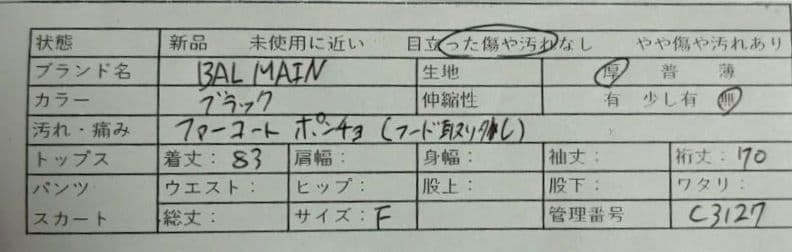 状態 新品 未使用に近い 目立った傷や汚れなし やや傷や汚れあり
ブランド名 BALMAIN 生地 厚 普 薄
カラー ブラック 伸縮性 有 少し有 無
汚れ・痛み ファーコート ポンチョ(フード取り外し)
トップス 着丈：83 肩幅： 身幅： 袖丈： 裄丈：70
パンツ ウエスト： ヒップ： 股上： 股下： ワタリ：
スカート 総丈： サイズ：F 管理番号 C3127